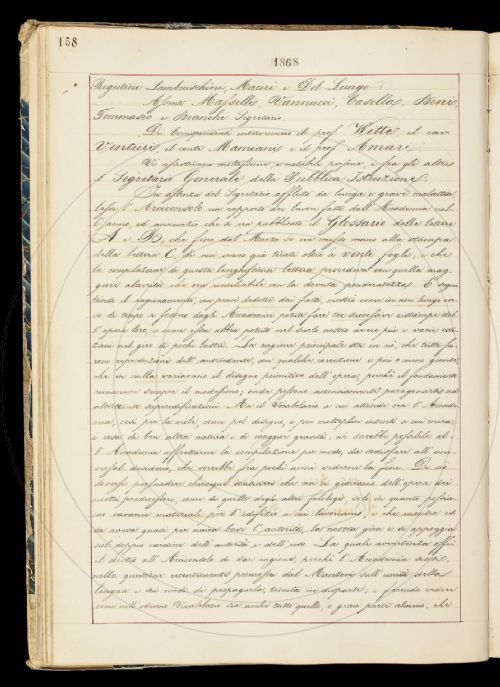 158
1868
Rigutini, Lambruschini, Mauri e Del Lungo.
Assenti Masselli, Vannucci, Casella, Bini,
Tommaseo e Bianchi Segretario.
Dei Corrispondenti intervennero il prof. Witte, il cav.
Venturi, il conte Mamiani e il prof. Amari.
Vi assistevano moltissime e notabili persone, e fra gli altri
il Segretario Generale della Pubblica Istruzione.
In assenza del Segretario afflitto da lunga e grave malattia
lesse l'Arciconsolo un rapporto dei lavori fatti dall'Accademia nel-
l'anno, ed annunziò che si era pubblicato il Glossario delle lettere
A e B, che fino dal Marzo si era messo mano alla stampa
della lettera C, di cui erano già tirati oltre a venti fogli, e che
la compilazione di questa lunghissima lettera procedeva con quella mag-
giore alacrità che era conciliabile con la dovuta ponderatezza. E segui-
tando il ragionamento,
di tempo si fossero dagli Accademici potute fare tre successive ristampe del-
l'opera loro, e come essa abbia potuto nel secolo nostro avere più e varie edi-
zioni nel giro di pochi lustri. La ragione principale sta in ciò, che tutte fu-
rono riproduzioni dell'antecedente, con qualche correzione e più o meno giunte,
che in nulla variavano il disegno primitivo dell'opera, perché il fondamento
rimaneva sempre il medesimo, onde possono acconciamente paragonarsi ad
altrettante Ma il Vocabolario a cui attende ora l'Accade-
mia,
è cosa di ben altra natura e di maggior gravità, né sarebbe possibile al-
l'Accademia affrettarne la compilazione per modo, da soddisfare all'uni-
versal desiderio, che vorrebbe fra pochi anni vederne la fine. Di ciò
dovrà persuadersi chiunque consideri che non ci gioviamo dell'opera dei
nostri predecessori, come di quella degli altri filologi, solo in quanto posso-
no cavarne materiali per l'edifizio a cui lavoriamo, e che mentre ad
essa aveva quasi per unica base l'autorità, la nostra gira e si appoggia
sul doppio cardine dell'autorità e dell'uso. La quale avvertenza offrì
il destro all'Arciconsolo di dar ragione, perché l'Accademia erasi,
nella quistione recentemente promossa dal Manzoni sull'unità della
lingua e sui modi di propagarla, tenuta in disparte, e facendo vedere
come nell'odierno Vocabolario sia anche tutto quello, o gran parte almeno, che